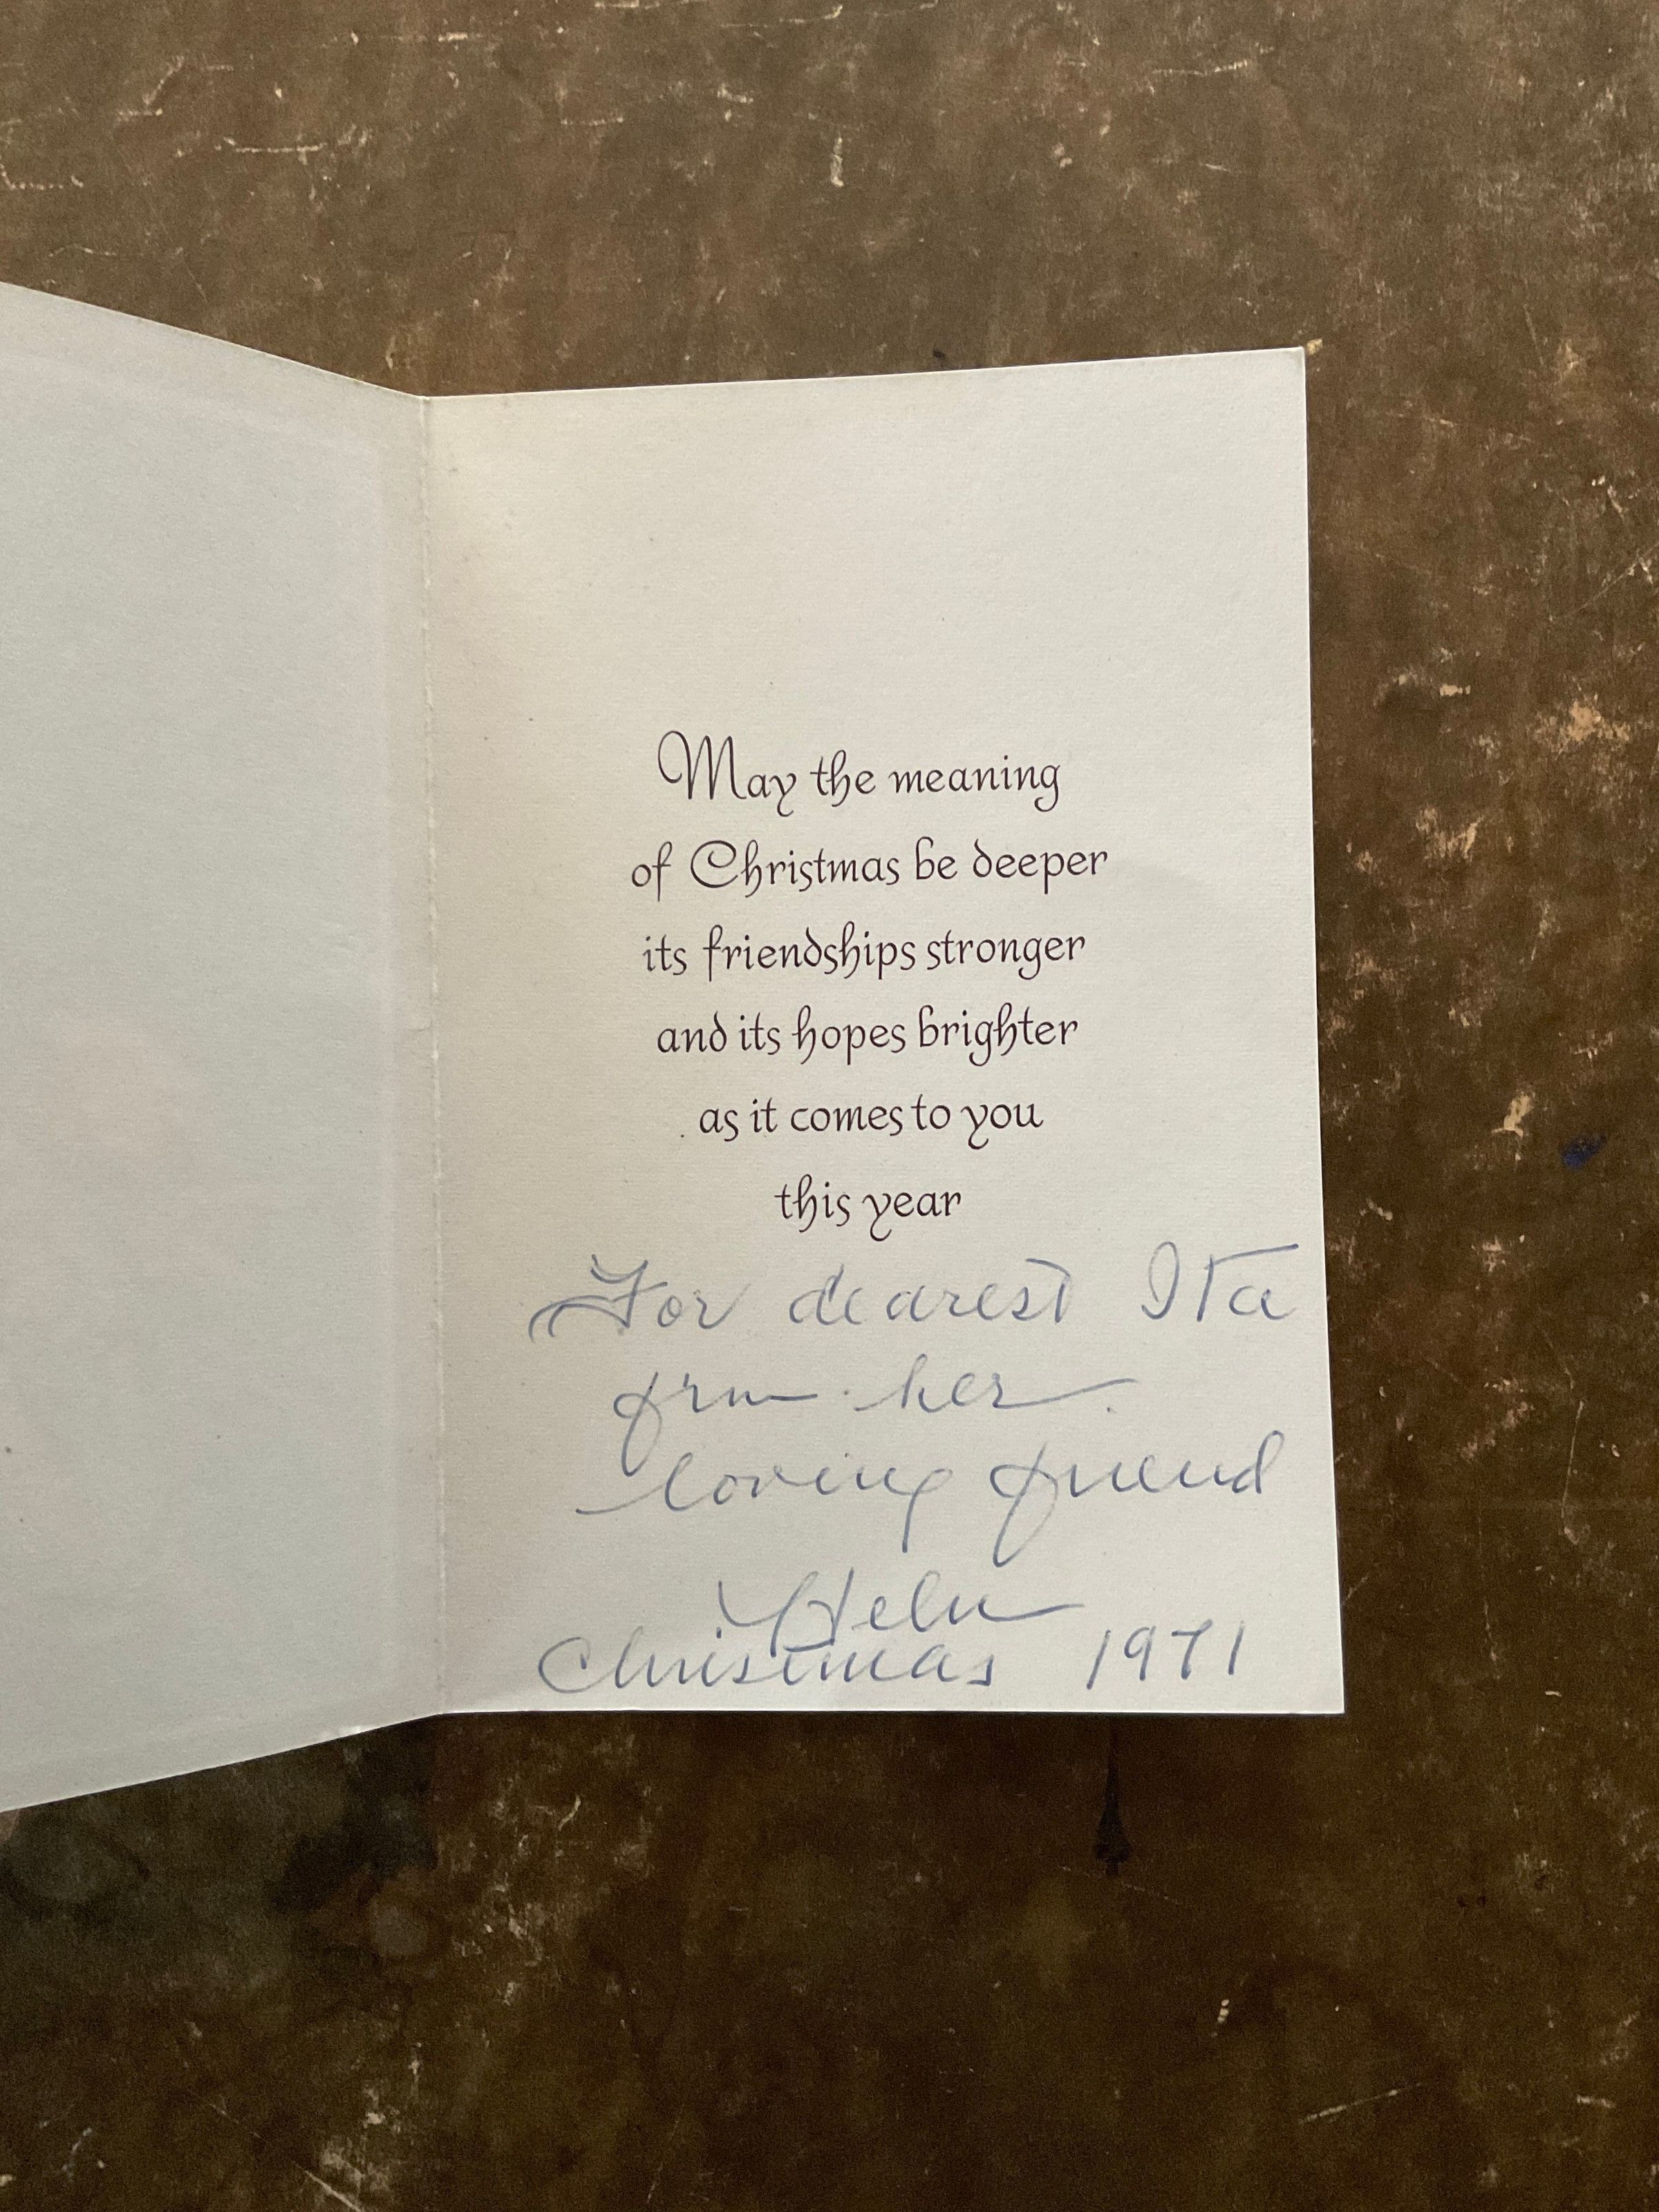 May the meaning
of Christmas be deeper
its friendships stronger
and its hopes brighter
as it comes to you
this year
For dearest Ita
from her
loving friend
Helen
Christmas 1971